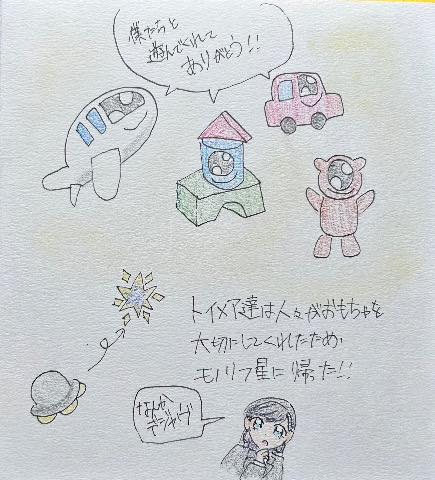 僕たちと
遊んでくれて
ありがとう!!
トイメア達は人々がおもちゃを
大切にしてくれたため
モノリフ星に帰った!!
なんか
デジャヴ